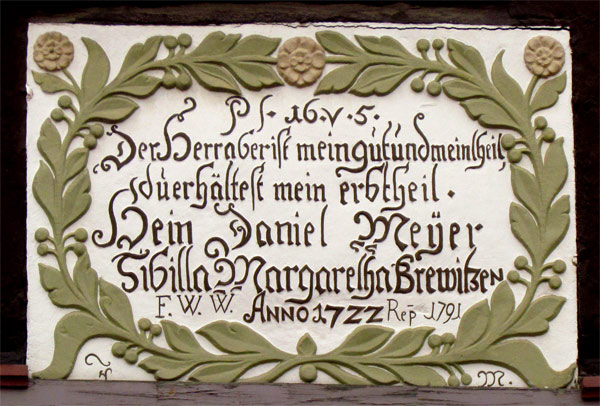 Ps. 16. v. 5.
Der Herr aber ist mein gut und mein theil,
du erhältest mein erbtheil.
Hein Daniel Meÿer
Sibilla Margaretha Brewitzen
F. W. W. ANNO 1722 Rep̄ 1791
M.